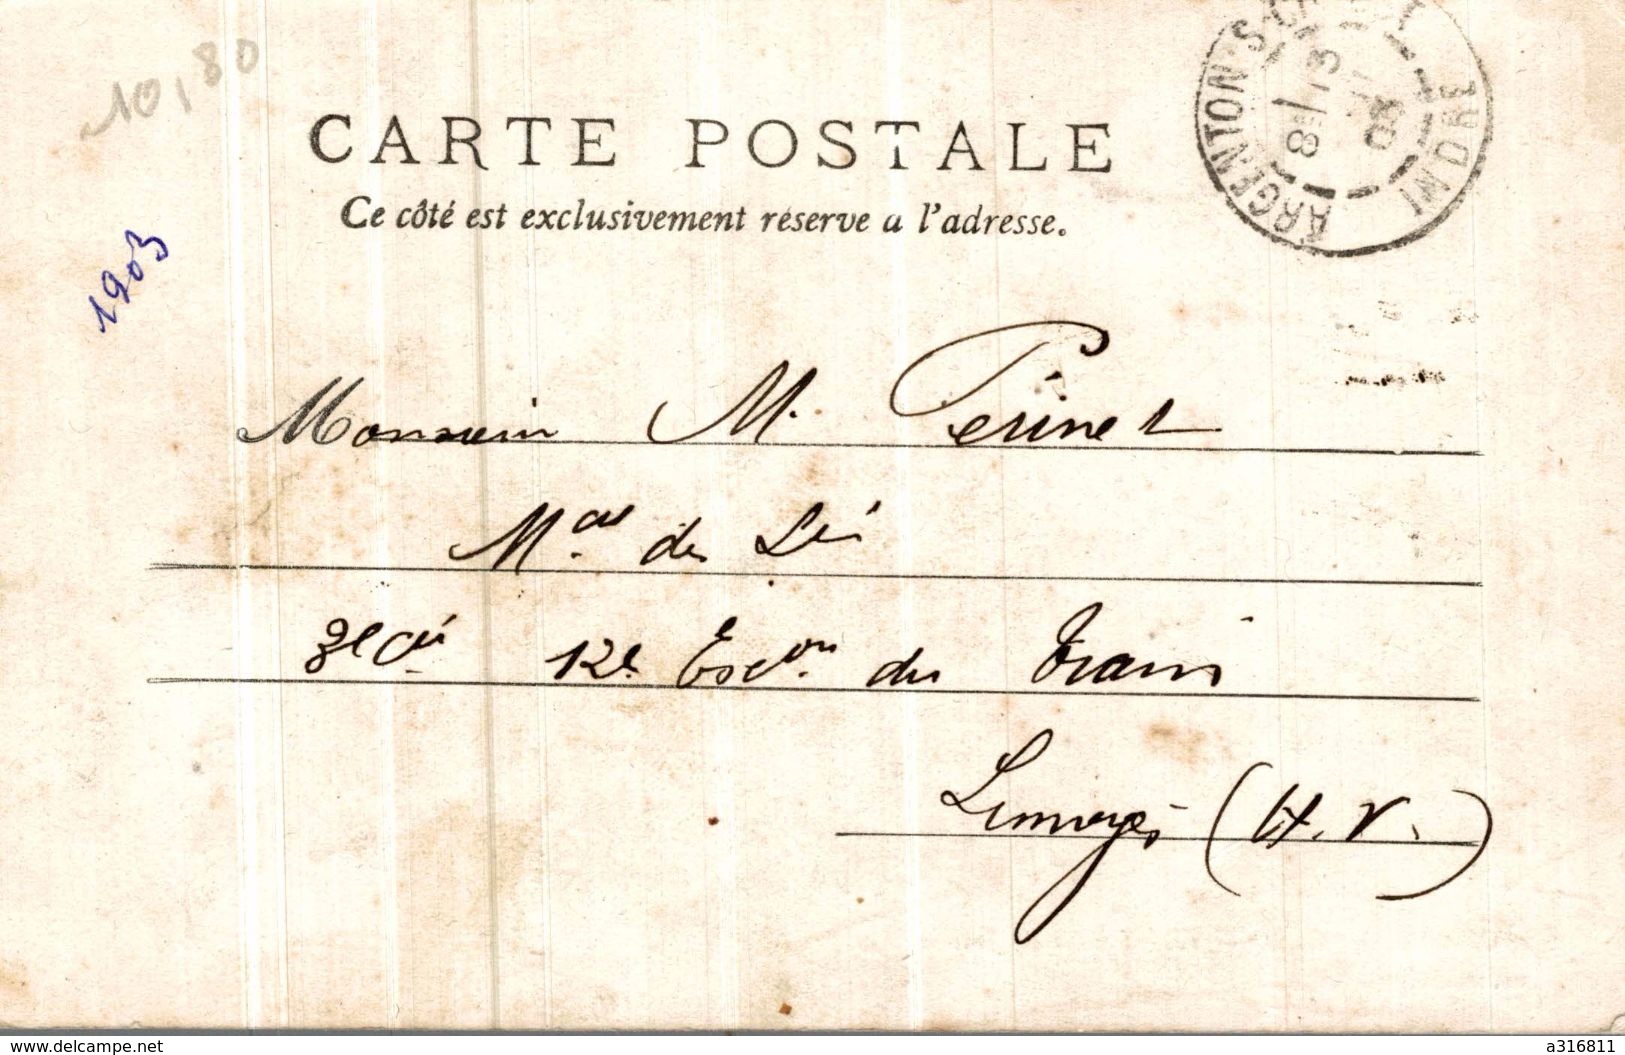 10,80
CARTE POSTALE
Ce côté est exclusivement réservé a l'adresse.
1903
ARGENTON-S-C INDRE
8 13
03
Monsieur M. Périnet
Mal des Lis
3e Cie 12e Escon du Train
Limoges (H.V.)
www.delcampe.net
a316811